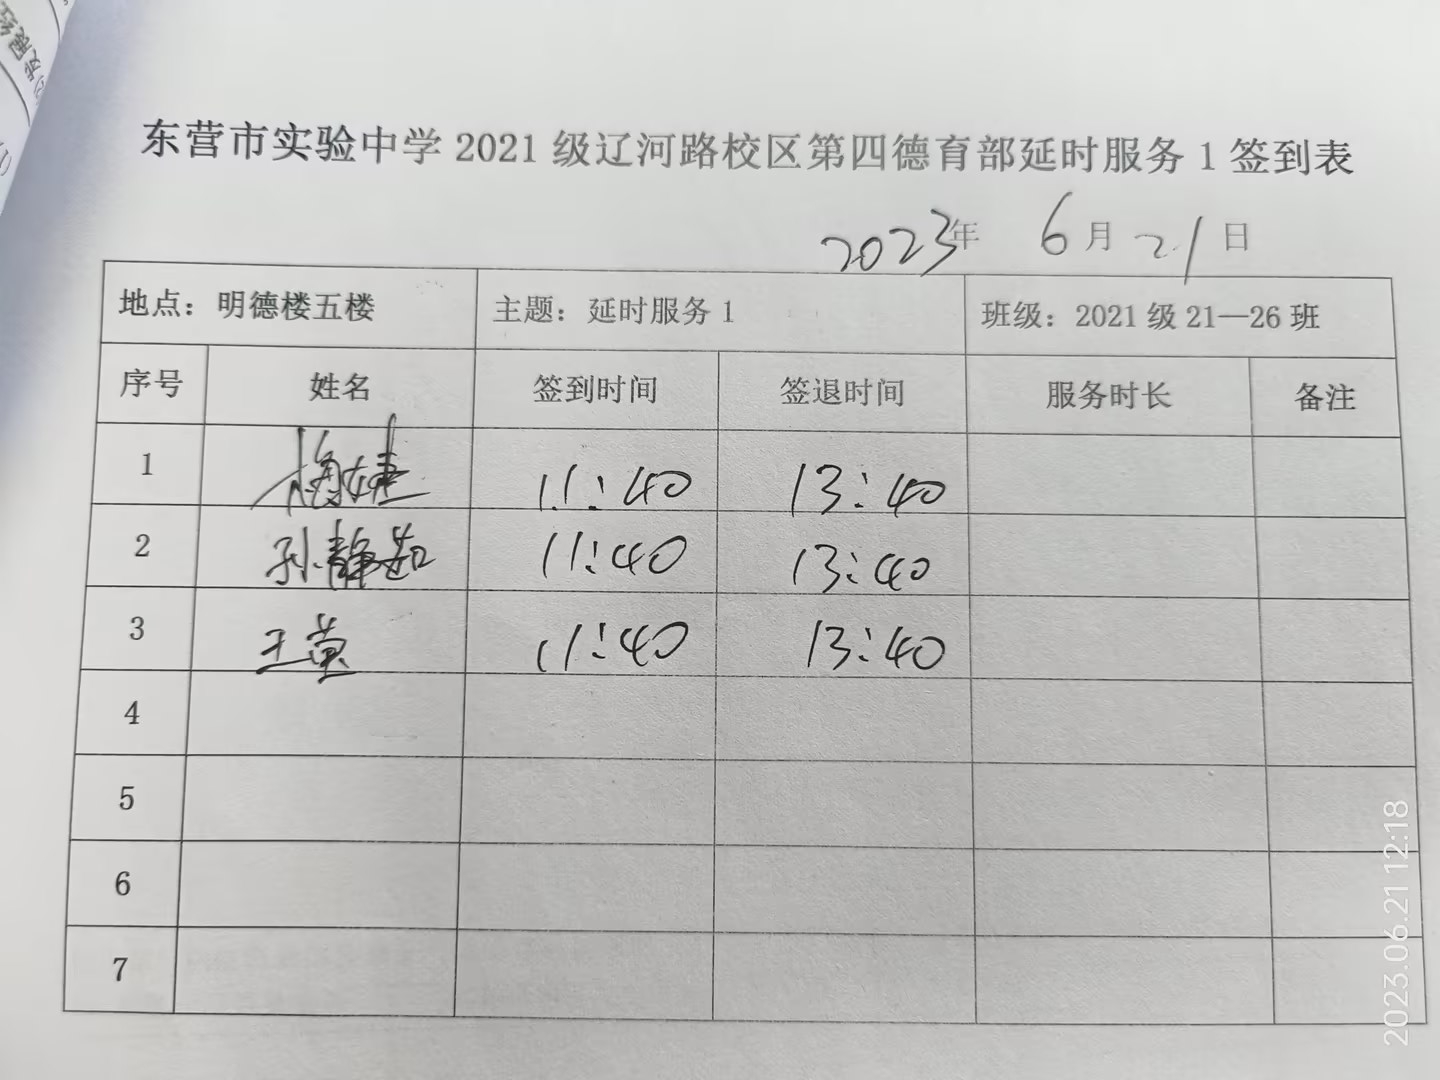 东营市实验中学 2021 级辽河路校区第四德育部延时服务 1 签到表
2023年 6月 21日
地点：明德楼五楼 主题：延时服务 1 班级：2021 级 21—26 班
序号 姓名 签到时间 签退时间 服务时长 备注
1 梅婕 11:40 13:40
2 孙静茹 11:40 13:40
3 王 11:40 13:40
4
5
6
7
2023.06.21 12:18